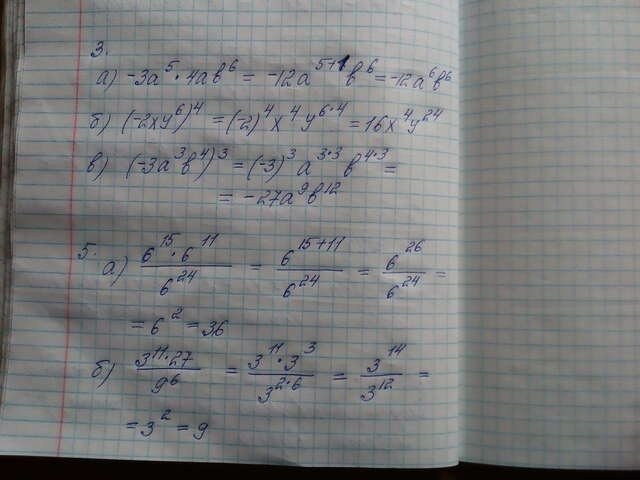 3.
а) -3a⁵·4ab⁶ = -12a⁵⁺¹b⁶ = -12a⁶b⁶
б) (-2xy⁶)⁴ = (-2)⁴x⁴y⁶·⁴ = 16x⁴y²⁴
в) (-3a³b⁴)³ = (-3)³a³·³b⁴·³ =
= -27a⁹b¹²
5. а) 6¹⁵·6¹¹/6²⁴ = 6¹⁵⁺¹¹/6²⁴ = 6²⁶/6²⁴ =
= 6² = 36
б) 3¹¹·27/9⁶ = 3¹¹·3³/3²·⁶ = 3¹⁴/3¹² =
= 3² = 9